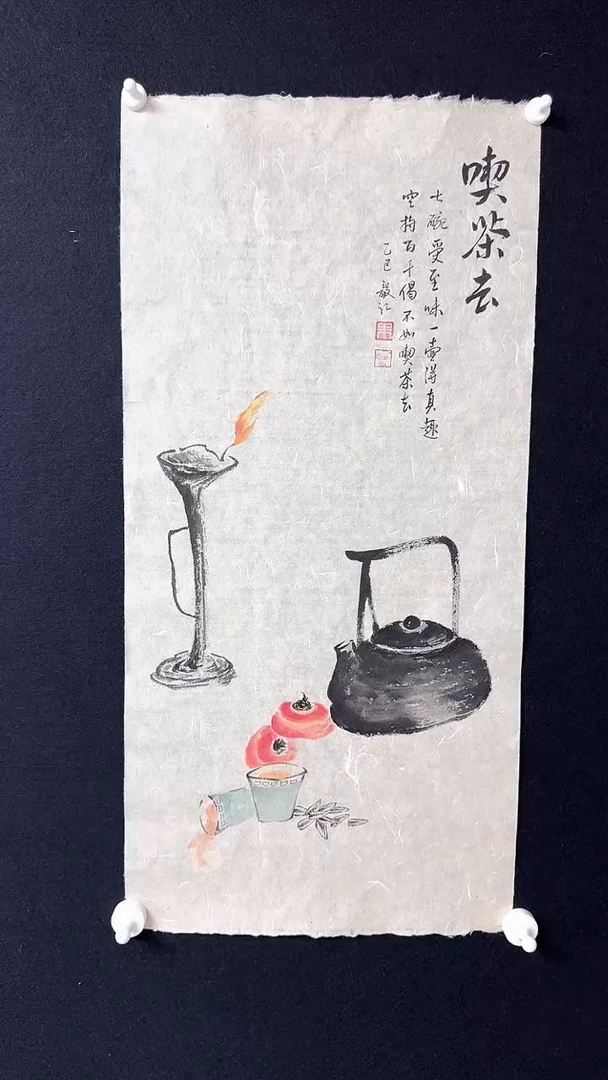 喫茶去
七碗受至味一壶得真趣
空持百千偈不如喫茶去
乙巳